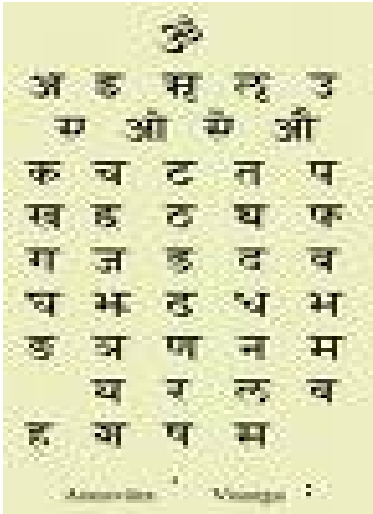 ॐ
अ इ ऋ ऌ उ
ए ओ ऐ औ
क च ट त प
ख छ ठ थ फ
ग ज ड द ब
घ झ ढ ध भ
ङ ञ ण न म
य र ल व
ह श ष स
Anusvāra Visarga